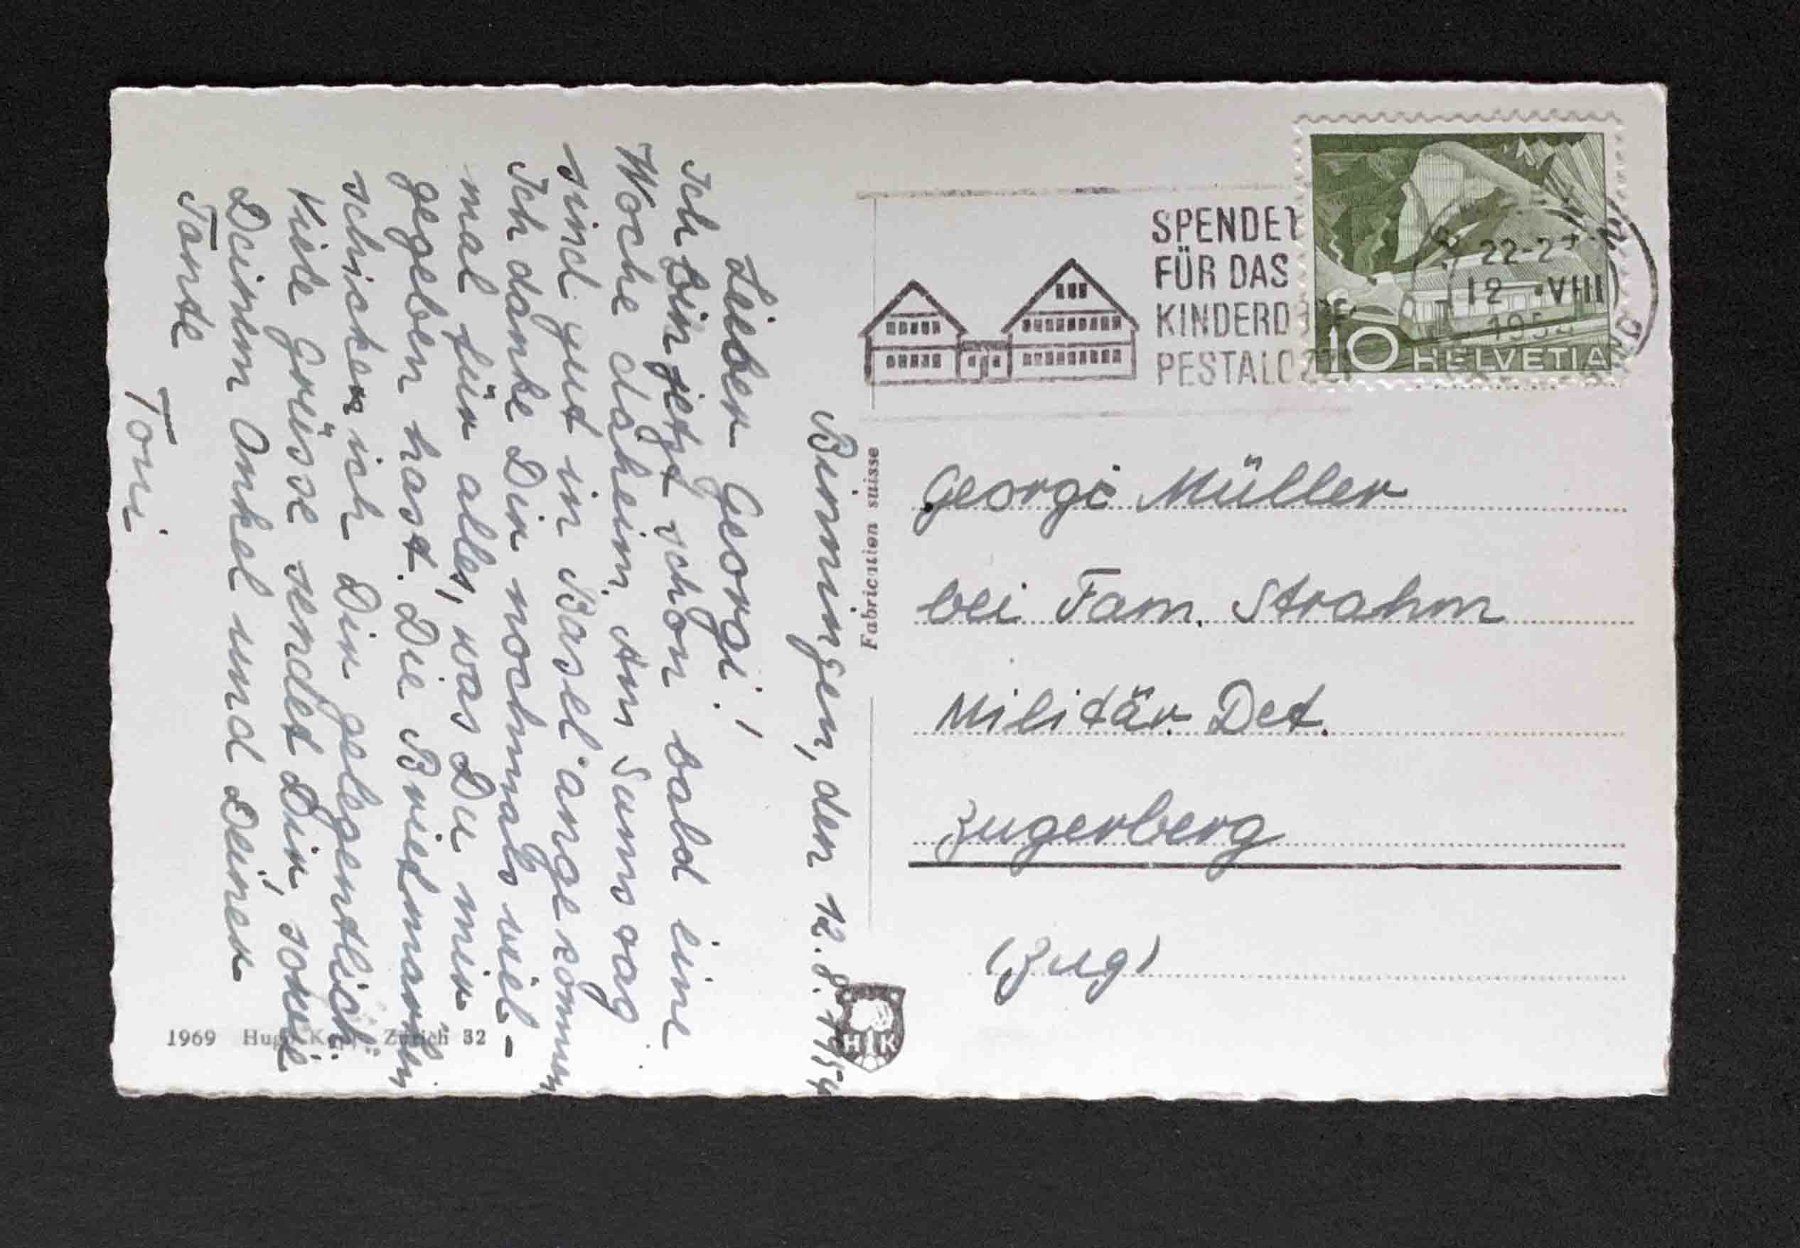 Binningen, den 12. 8. 1954
Lieber Georgi!
Ich bin jetzt schon bald eine
Woche daheim. Am Samstag
sind gut in Basel angekommen
Ich danke Dir nochmals viel-
mal für alles, was Du mir
gegeben hast. Die Briefmarken
schicken ich Dir gelegentlich.
Viele Grüsse sendet Dir, sowie
Deinem Onkel und Deiner
Tante
Toni
1969 Hugo Zürich 32
Fabrication suisse
HK
SPENDET
FÜR DAS
KINDERDORF
PESTALOZZI
22-2
12 VIII
195
10 HELVETIA
Georgi Müller
bei Fam. Strahm
Militär. Det.
Zugerberg
(Zug)